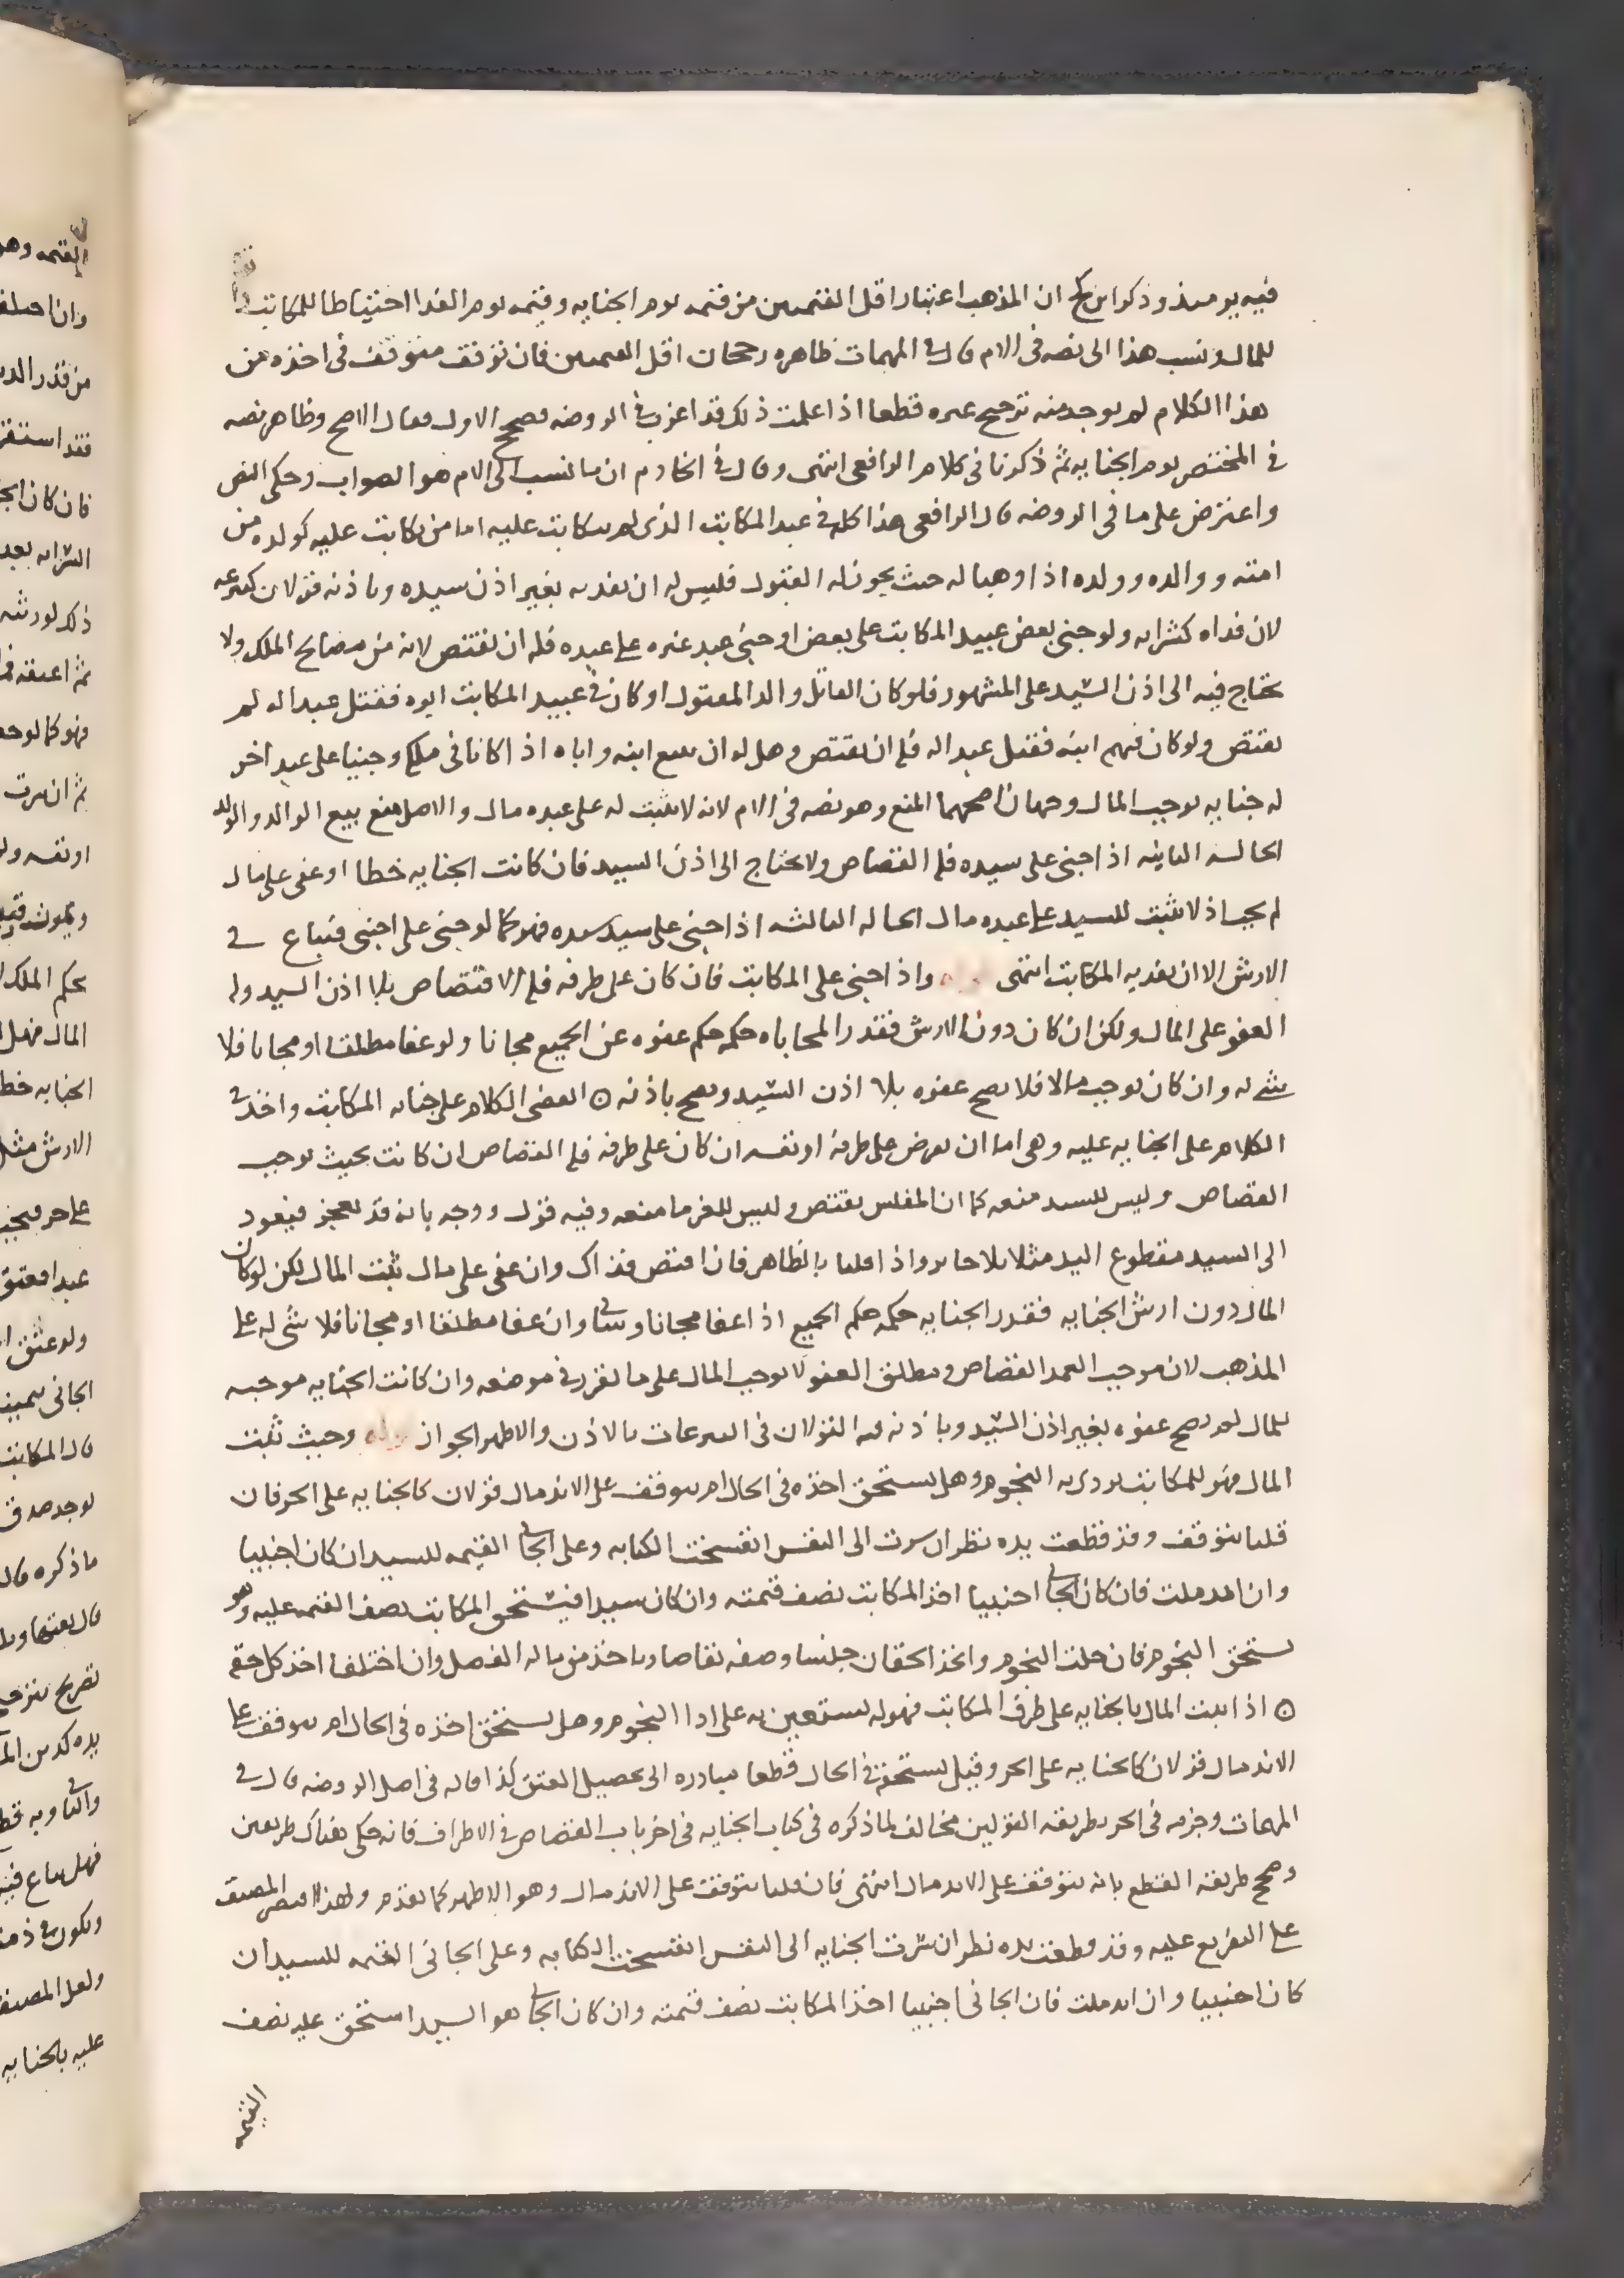 فيه يومئذ وذكر ابن كج ان المذهب اعتبار اقل القيمتين من قيمه يوم الجنايه وقيمه يوم الفدا احتياطا للمكاتب
للمال ونسب هذا الى نصه في الام قال في المهمات ظاهره رجحان اقل القيمتين فان توقف متوقف في اخذه من
هذا الكلام لم يوجد منه ترجيح غيره قطعا اذا علمت ذلك فقد اغرب في الروضه فصحح الاول فقال الاصح وظاهر نصه
في المختصر يوم الجنايه ثم ذكر ثاني كلام الرافعي انتهى وقال في الخادم ان ما نسب الى الام هو الصواب وحكى النص
واعترض على ما في الروضه قال الرافعي هذا كله في عبد المكاتب الذي لم يتكاتب عليه اما من يكاتب عليه كولده من
امته ووالده وولده اذا وهبا له حيث يجوز له القبول فليس له ان يفديه بغير اذن سيده وباذنه قولان كتبرعه
لان فداه كشرايه ولو جنى بعض عبيد المكاتب على بعض او جنى عبد غيره على عبده فله ان يقتص لانه من مصالح الملك ولا
يحتاج فيه الى اذن السيد على المشهور فلو كان القاتل والد المقتول او كان في عبيد المكاتب ابوه فقتل عبدا له لم
يقتص ولو كان فيهم ابنه فقتل عبدا له فله ان يقتص وهل له ان يبيع ابنه واباه اذا كانا في ملكه وجنيا على عبد اخر
له جنايه توجب المال وجهان اصحهما المنع وهو نصه في الام لانه لا يثبت له على عبده مال والاصل منع بيع الوالد والولد
الحاله الثانيه اذا جنى على سيده فله القصاص ولا يحتاج الى اذن السيد فان كانت الجنايه خطا او عفى على مال
لم يجب اذ لا يثبت للسيد على عبده مال الحاله الثالثه اذا جنى على سيد سيده فهو كما لو جنى على اجنبي فيباع في
الارش الا ان يفديه المكاتب انتهى واذا جنى على المكاتب فان كان على طرفه فله الاقتصاص بلا اذن السيد وله
العفو على المال ولكن ان كان دون الارش فقدر المحاباه حكمه حكم عفوه عن الجميع مجانا ولو عفا مطلقا او مجانا فلا
شي له وان كان يوجب مالا فلا يصح عفوه بلا اذن السيد ويصح باذنه ○ انقضى الكلام على جنايه المكاتب واخذ في
الكلام على الجنايه عليه وهي اما ان تعرض على طرفه او نفسه ان كان على طرفه فله القصاص ان كانت بحيث توجب
القصاص وليس للسيد منعه كما ان المفلس يقتص وليس للغرما منعه وفيه قول ووجه بانه قد يعجز فيعود
الى السيد مقطوع اليد مثلا بلا جابر واذا قلنا بالظاهر فان اقتص فذاك وان عفى على مال ثبت المال لكن لو كان
المال دون ارش الجنايه فقدر الجنايه حكمه حكم الجميع اذا عفا مجانا وسياتي وان عفا مطلقا او مجانا فلا شي له على
المذهب لان موجب العمد القصاص ومطلق العفو لا يوجب المال على ما تقرر في موضعه وان كانت الجنايه موجبه
للمال لم يصح عفوه بغير اذن السيد وباذنه فيه القولان في التبرعات بالاذن والاظهر الجواز وحيث ثبت
المال فهو للمكاتب يودي به النجوم وهل يستحق اخذه في الحال ام يتوقف على الاندمال قولان كالجنايه على الحر فان
قلنا يتوقف وقد قطعت يده نظر ان سرت الى النفس انفسخت الكتابه وعلى الجاني القيمه للسيد ان كان اجنبيا
وان اندملت فان كان الجاني اجنبيا اخذ المكاتب نصف قيمته وان كان سيدا فيستحق المكاتب نصف القيمه عليه وهو
يستحق النجوم فان حلت النجوم واتخذ الحقان جنسا وصفه تقاصا وياخذ من ماله الفضل وان اختلفا اخذ كل حقه
○ اذا ثبت المال بالجنايه على طرف المكاتب فهو له يستعين به على ادا النجوم وهل يستحق اخذه في الحال ام يتوقف على
الاندمال قولان كالجنايه على الحر وقيل يستحقه في الحال قطعا مبادره الى تحصيل العتق كذا قاله في اصل الروضه قال في
المهمات وجزمه في الحر بطريقه القولين مخالف لما ذكره في كتاب الجنايه في اخر باب القصاص في الاطراف فانه حكى هناك طريقين
وصحح طريقه القطع بانه يتوقف على الاندمال انتهى فان قلنا يتوقف على الاندمال وهو الاظهر كما تقدم ولهذا اقتصر المصنف
على التفريع عليه وقد قطعت يده نظر ان سرت الجنايه الى النفس انفسخت الكتابه وعلى الجاني القيمه للسيد ان
كان اجنبيا وان اندملت فان الجاني اجنبيا اخذ المكاتب نصف قيمته وان كان الجاني هو السيد استحق عليه نصف
القيمه